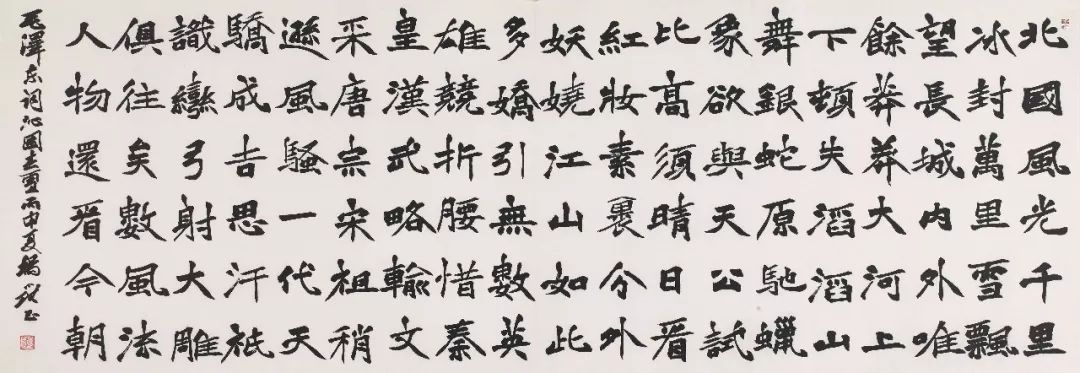 北國風光千里
冰封萬里雪飄
望長城内外唯
餘莽莽大河上
下頓失滔滔山
舞銀蛇原馳蠟
象欲與天公試
比高須晴日看
紅妝素裹分外
妖嬈江山如此
多嬌引無數英
雄競折腰惜秦
皇漢武略輸文
采唐宗宋祖稍
遜風騷一代天
驕成吉思汗祇
識彎弓射大雕
俱往矣數風流
人物還看今朝
毛澤东词沁園春雪丙申夏楊